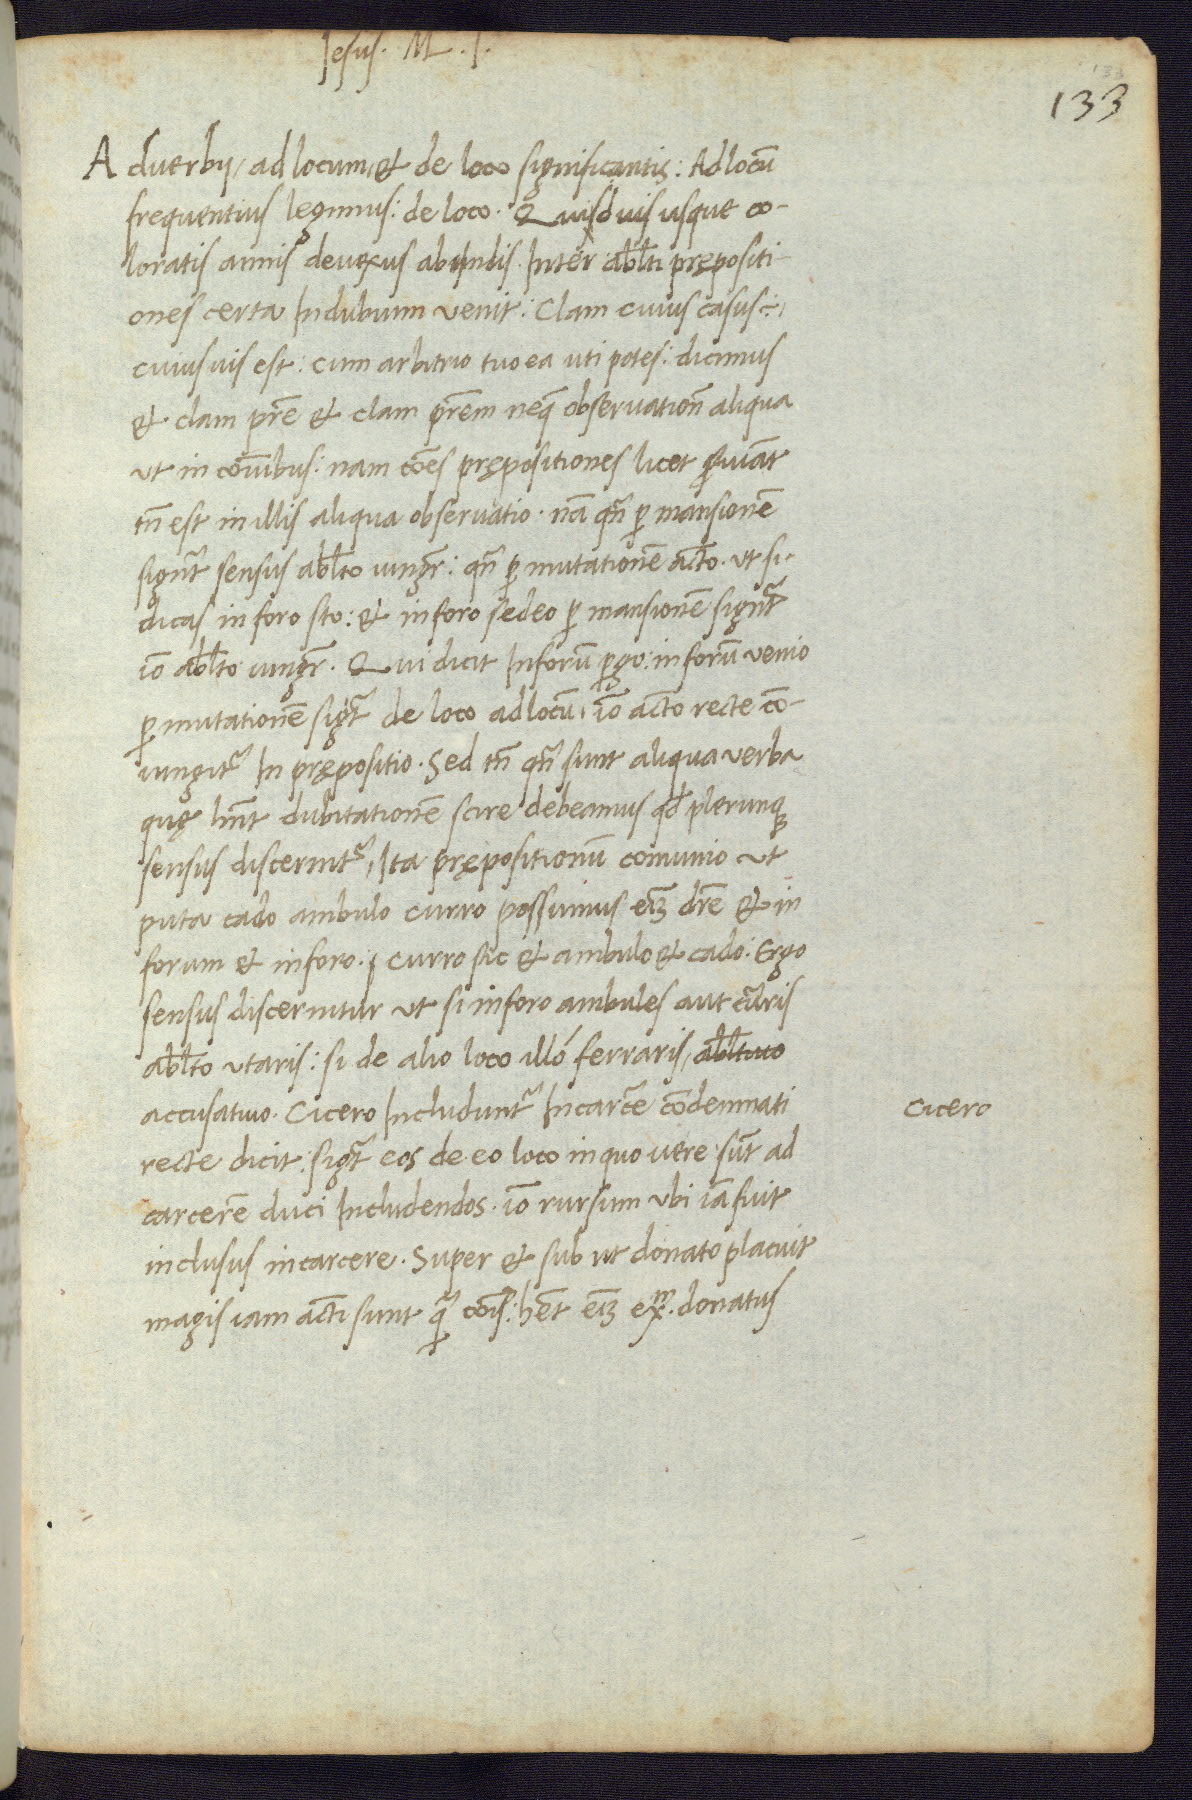 Iesus. M. I.
133
133
Aduerbij, ad locum, et de loco significantis: Ad locũ
frequentius legimus: de loco. Quisduis usque co-
loratis amnis deuexus ab indis. Inter abl̃ti prępositi-
ones certa In dubium venit: Clam cuius casus:
cuiusuis est: cum arbitrio tuo ea uti potes: dicimus
et clam pr̃e et clam pr̃em neq̃ obseruationẽ aliqua
ut in cõmĩbus: nam cões prępositiones licet
tñ est in illis aliqua obseruatio. nã qñ ꝑ mansionẽ
signr̃t sensus abl̃to iungr̃: qñ ꝑ mutationẽ act̃o. ut si
dicas in foro sto: et in foro sedeo ꝑ mansionẽ signr̃t
iõ abl̃to iungr̃. Qui dicit In forũ ꝑgo: in forũ venio
ꝑ mutationẽ sigr̃t de loco ad locũ, iõ act̃o recte cõ-
iungitr̃ In prępositio. Sed tñ qñ sunt aliqua verba
quę hñt dubitationẽ scire debeamus qd̃ plerunq3
sensus discernitr̃, Ita prępositionũ comunio ut
puta cado ambulo curro possumus eĩ3 dr̃e et in
forum et in foro. curro sic et ambulo et cado: Ergo
sensus discernitur ut si in foro ambules aut cũris
abl̃to utaris: si de alio loco illó ferraris, abl̃tiuo
accusatiuo. Cicero Includuntr̃ In carcẽ cõdemnati
recte dicit: sigr̃t eos de eo loco in quo uere sũt ad
carcerẽ duci Includendos. iõ rursum ubi iã fuit
inclusus in carcere. Super et sub ut donato placuit
magis iam act̃i sunt q̃ cõis: hẽt eĩ3 exᵐ. donatus
Cicero